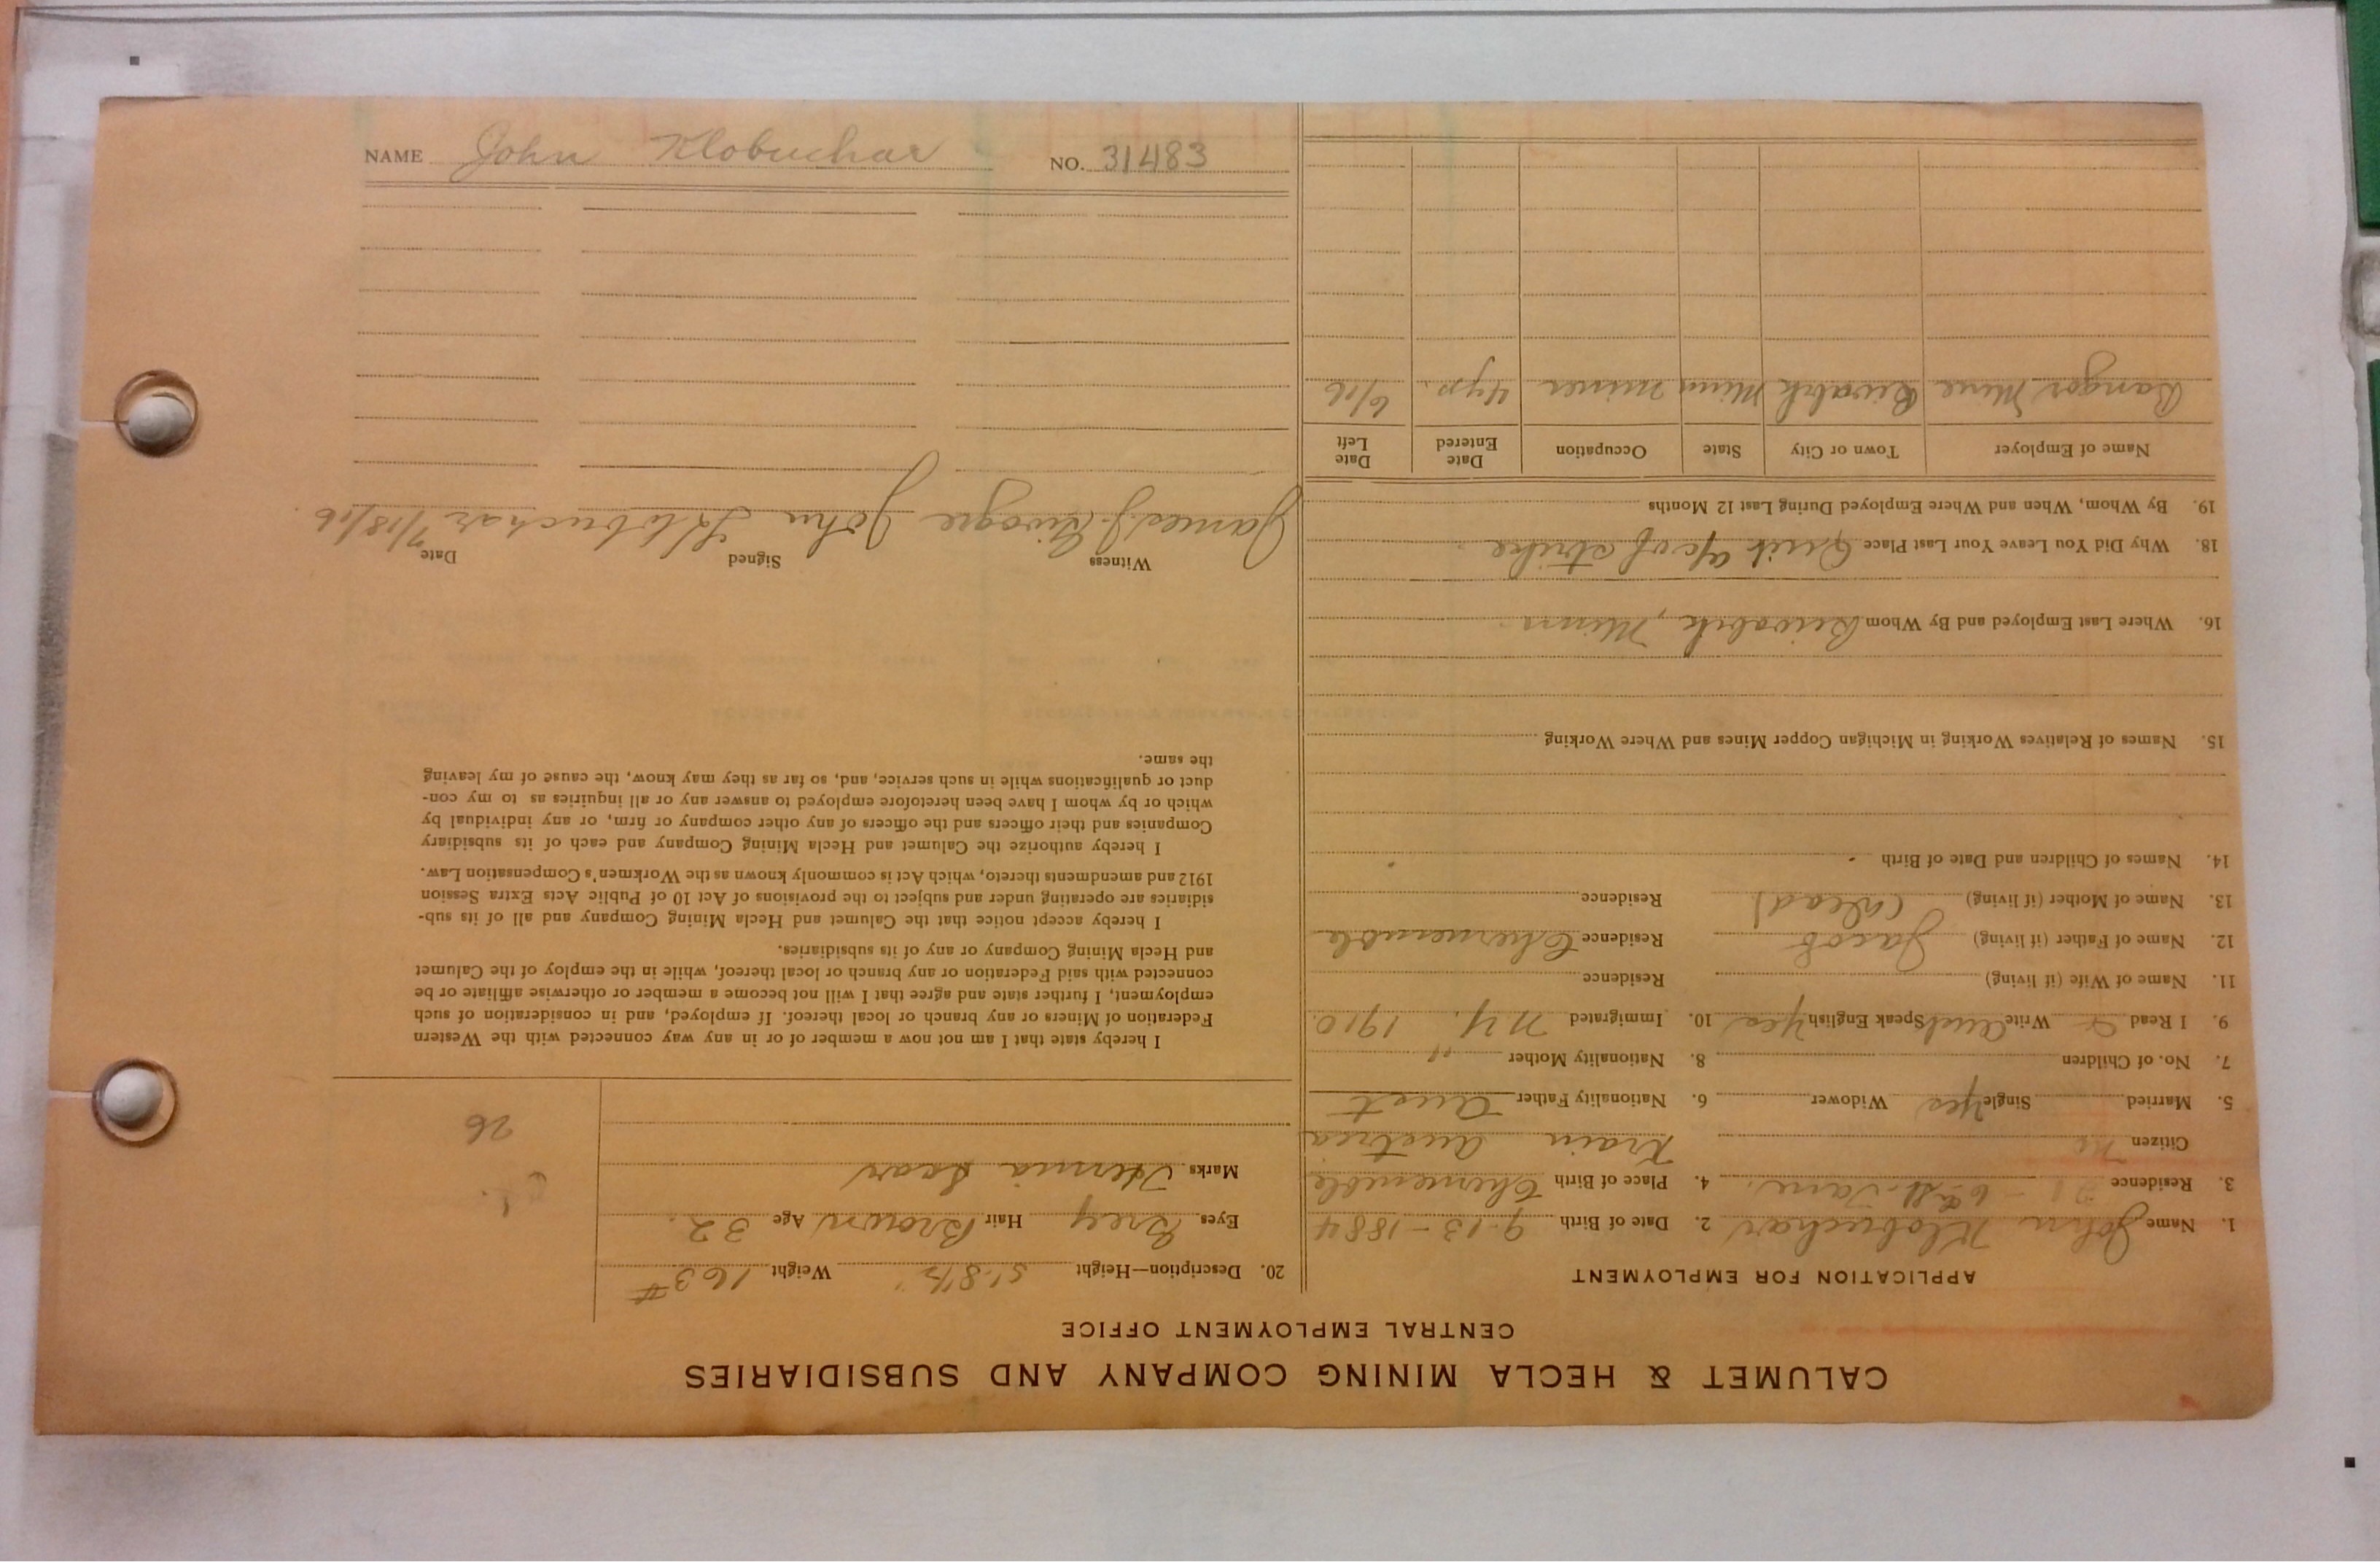 CALUMET & HECLA MINING COMPANY AND SUBSIDIARIES
CENTRAL EMPLOYMENT OFFICE
APPLICATION FOR EMPLOYMENT
1. Name John Klobuchar 2. Date of Birth 9-13-1884
3. Residence 4. Place of Birth
Citizen no Krain Austria
5. Married Single Yes Widower 6. Nationality Father Aust
7. No. of Children 8. Nationality Mother "
9. I Read & Write Aust Speak English Yes 10. Immigrated N.Y. 1910.
11. Name of Wife (if living) Residence
12. Name of Father (if living) Jacob Residence
13. Name of Mother (if living) (dead) Residence
14. Names of Children and Date of Birth
15. Names of Relatives Working in Michigan Copper Mines and Where Working
16. Where Last Employed and By Whom Biwabik, Minn.
18. Why Did You Leave Your Last Place Quit a/c of strike
19. By Whom, When and Where Employed During Last 12 Months
Name of Employer Town or City State Occupation Date Entered Date Left
Bangor Mine Biwabik Minn miner 4 yrs. 6/16
20. Description—Height 5'.8½" Weight 163#
Eyes Grey Hair Brown Age 32.
Marks Hernia Scar
26
I hereby state that I am not now a member of or in any way connected with the Western
Federation of Miners or any branch or local thereof. If employed, and in consideration of such
employment, I further state and agree that I will not become a member or otherwise affiliate or be
connected with said Federation or any branch or local thereof, while in the employ of the Calumet
and Hecla Mining Company or any of its subsidiaries.
I hereby accept notice that the Calumet and Hecla Mining Company and all of its sub-
sidiaries are operating under and subject to the provisions of Act 10 of Public Acts Extra Session
1912 and amendments thereto, which Act is commonly known as the Workmen's Compensation Law.
I hereby authorize the Calumet and Hecla Mining Company and each of its subsidiary
Companies and their officers and the officers of any other company or firm, or any individual by
which or by whom I have been heretofore employed to answer any or all inquiries as to my con-
duct or qualifications while in such service, and, so far as they may know, the cause of my leaving
the same.
Witness Signed Date
James J. John Klobuchar 7/18/16.
NAME John Klobuchar NO. 31483